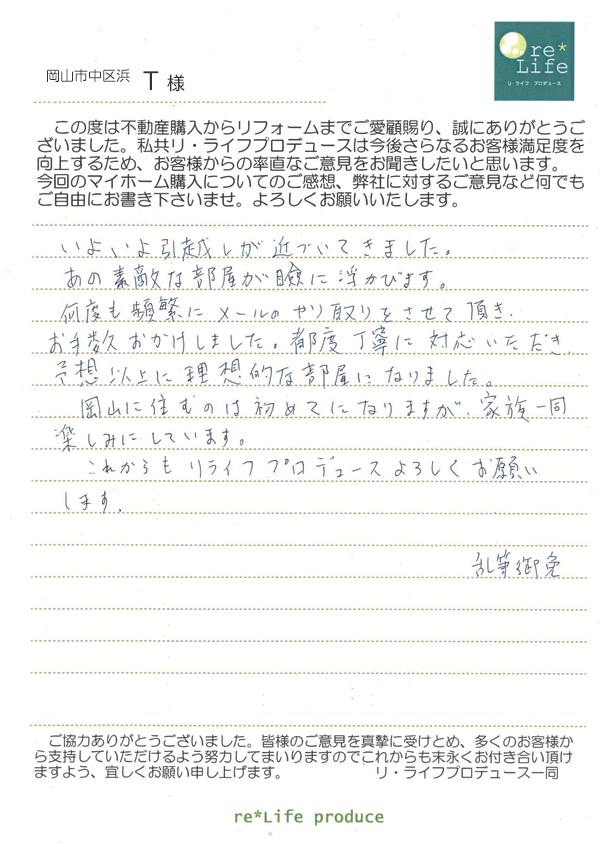 re*
Life
リ・ライフ プロデュース
岡山市中区浜 T 様
この度は不動産購入からリフォームまでご愛顧賜り、誠にありがとうご
ざいました。私共リ・ライフプロデュースは今後さらなるお客様満足度を
向上するため、お客様からの率直なご意見をお聞きしたいと思います。
今回のマイホーム購入についてのご感想、弊社に対するご意見など何でも
ご自由にお書き下さいませ。よろしくお願いいたします。
いよいよ引越しが近づいてきました。
あの素敵な部屋が瞼に浮かびます。
何度も頻繁にメールのやり取りをさせて頂き、
お手数おかけしました。都度丁寧に対応いただき、
予想以上に理想的な部屋になりました。
岡山に住むのは初めてになりますが、家族一同
楽しみにしています。
これからもリライフプロデュースよろしくお願い
します。
乱筆御免
ご協力ありがとうございました。皆様のご意見を真摯に受けとめ、多くのお客様か
ら支持していただけるよう努力してまいりますのでこれからも末永くお付き合い頂け
ますよう、宜しくお願い申し上げます。 リ・ライフプロデュース一同
re*Life produce